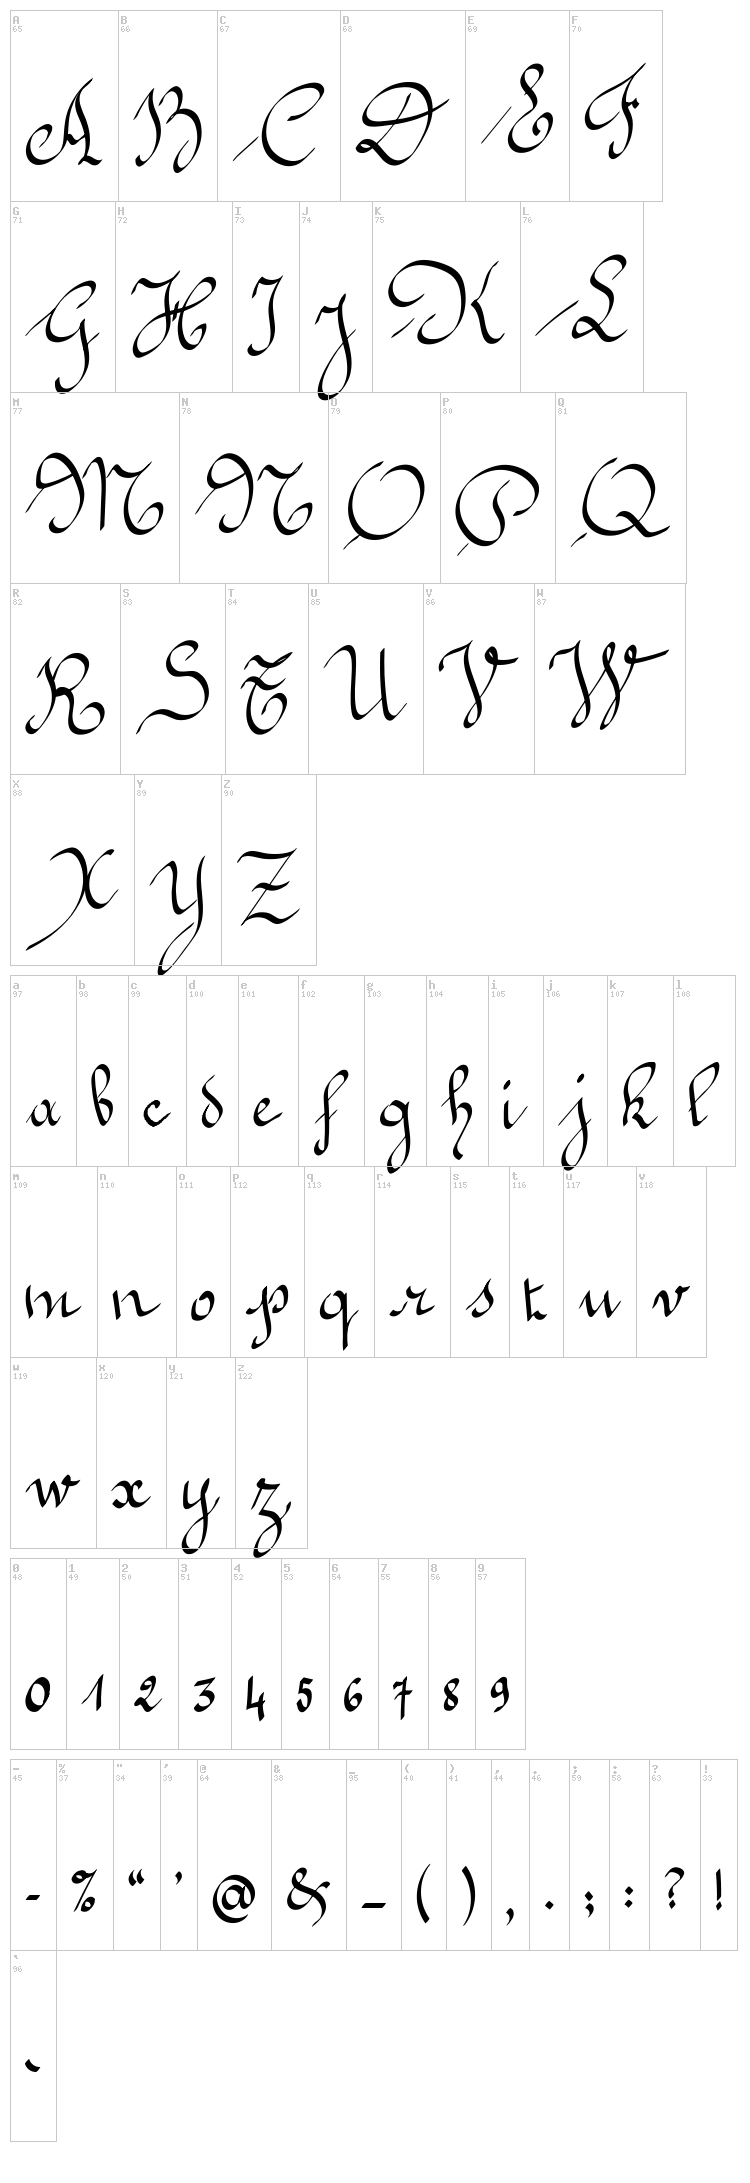 A B C D E F
65 66 67 68 69 70
A B C D E F
G H I J K L
71 72 73 74 75 76
G H I J K L
M N O P Q
77 78 79 80 81
M N O P Q
R S T U V W
82 83 84 85 86 87
R S T U V W
X Y Z
88 89 90
X Y Z
a b c d e f g h i j k l
97 98 99 100 101 102 103 104 105 106 107 108
a b c d e f g h i j k l
m n o p q r s t u v
109 110 111 112 113 114 115 116 117 118
m n o p q r s t u v
w x y z
119 120 121 122
w x y z
0 1 2 3 4 5 6 7 8 9
48 49 50 51 52 53 54 55 56 57
0 1 2 3 4 5 6 7 8 9
- % " ' @ & _ ( ) , . ; : ? !
45 37 34 39 64 38 95 40 41 44 46 59 58 63 33
- % “ ’ @ & _ ( ) , . ; : ? !
`
96
`